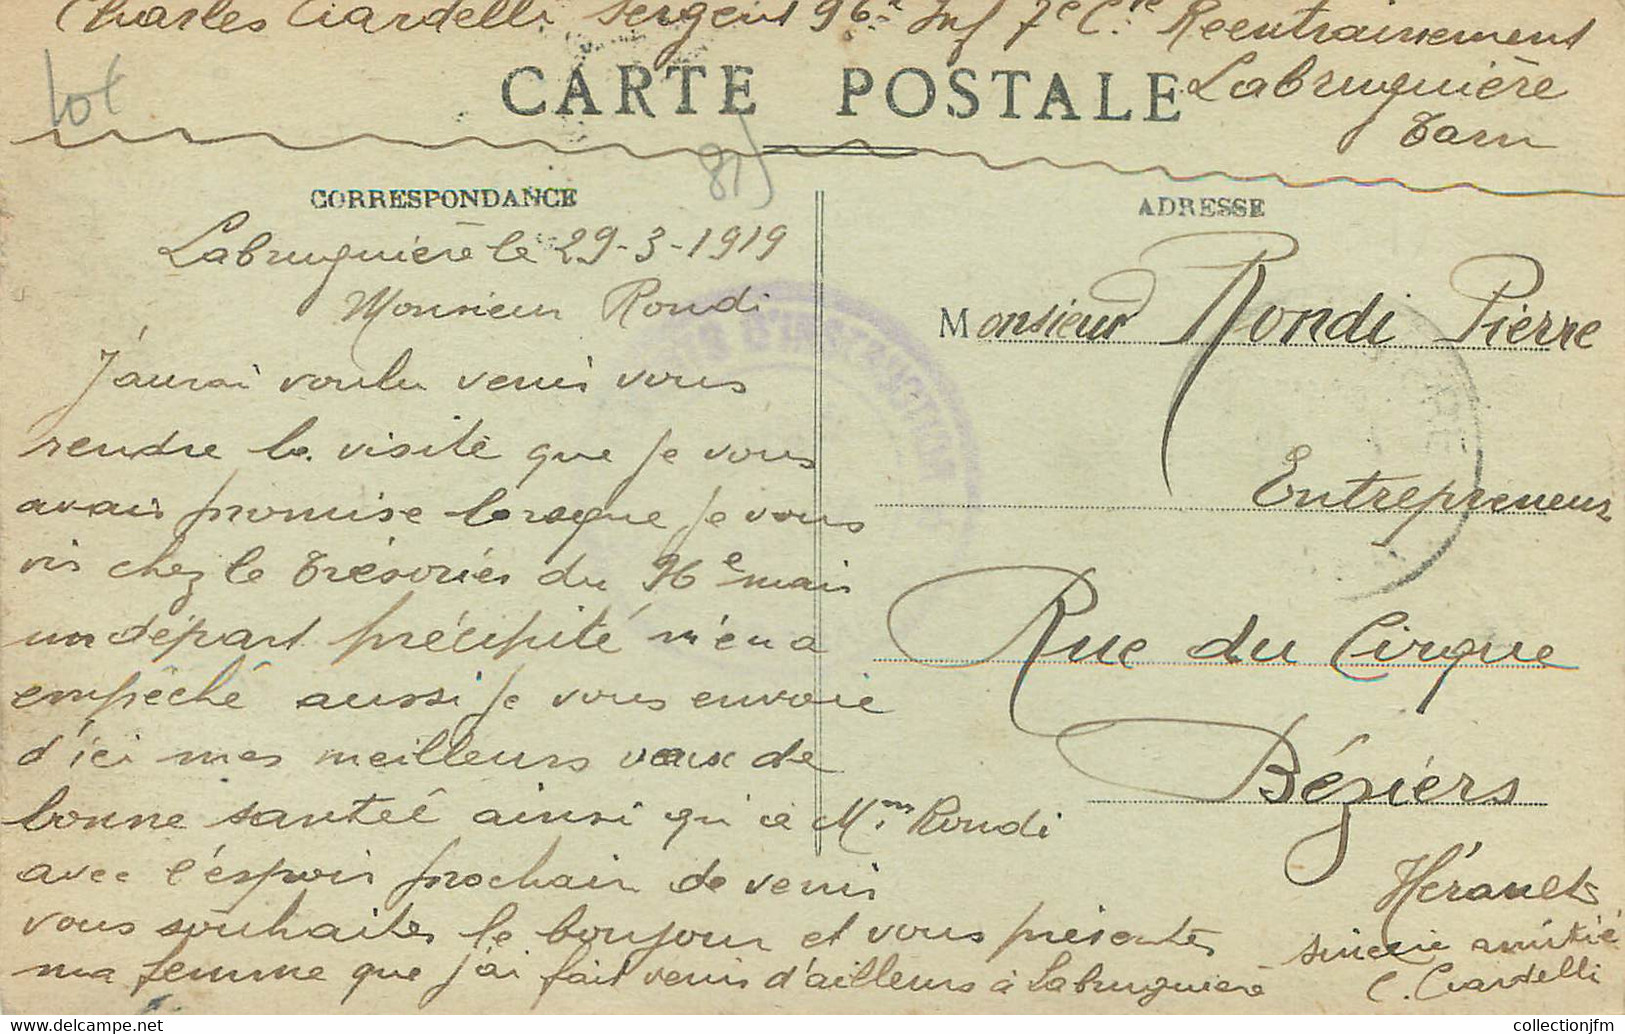 Charles Ciardelli Sergent 96e Inf 7e Cie Réentrainement
Labruguière
Tarn
lot
CARTE POSTALE
81)
CORRESPONDANCE
ADRESSE
Labruguière le 29-3-1919
Monsieur Rondi
J'aurai voulu venir vous
rendre la visite que je vous
avais promise lorsque je vous
vis chez le Trésorier du 96e mais
un départ précipité m'en a
empêché aussi je vous envoie
d'ici mes meilleurs vœux de
bonne santée ainsi qu'à Mme Rondi
avec l'espoir prochain de venir
vous souhaiter le bonjour et vous présenter
ma femme que j'ai fait venir d'ailleurs à Labruguière
sincère amitié
C. Ciardelli
Monsieur Rondi Pierre
Entrepreneur
Rue du Cirque
Béziers
Hérault
D'INSTRUCTION
collectionjfm